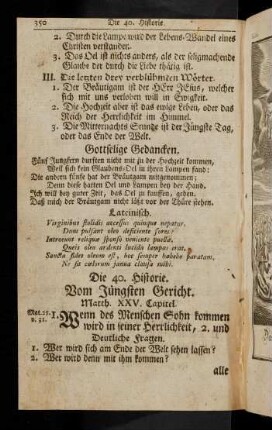 350 Die 40. Historie.
2. Durch die Lampe wird der Lebens-Wandel eines
Christen verstanden.
3. Das Oel ist nichts anders, als der seligmachende
Glaube der durch die Liebe thätig ist.
III. Die letzten drey verblühmten Wörter.
1. Der Bräutigam ist der HErr JEsus, welcher
sich mit uns verloben will in Ewigkeit.
2. Die Hochzeit aber ist das ewige Leben, oder das
Reich der Herrlichkeit im Himmel.
3. Die Mitternachts Stunde ist der Jüngste Tag,
oder das Ende der Welt.
Gottselige Gedancken.
Fünf Jungfern durften nicht mit zu der Hochzeit kommen,
Weil sich kein Glaubens-Oel in ihren Lampen fand:
Die andern fünfe hat der Bräutigam mitgenommen;
Denn diese hatten Oel und Lampen bey der Hand.
Ich will bey guter Zeit, das Oel zu kauffen, gehen.
Daß mich der Bräutgam nicht läßt vor der Thüre stehen.
Lateinisch.
Virginibus stolidis accessus quinque negatur,
Dum pulsant oleo deficiente fores:
Introeunt reliquæ sponso veniente puellæ,
Queis oleo ardenti lucida lampas erat.
Sancta fides oleum est, hoc semper habebo paratum,
Ne sit cœlorum janua clausa mihi.
Die 40. Historie.
Vom Jüngsten Gericht.
Matth. XXV. Capitel.
Mat. 25.
v. 31.
1. Wenn des Menschen Sohn kommen
wird in seiner Herrlichkeit, 2. und
Deutliche Fragen.
1. Wer wird sich am Ende der Welt sehen lassen?
2. Wer wird denn mit ihm kommen?
alle